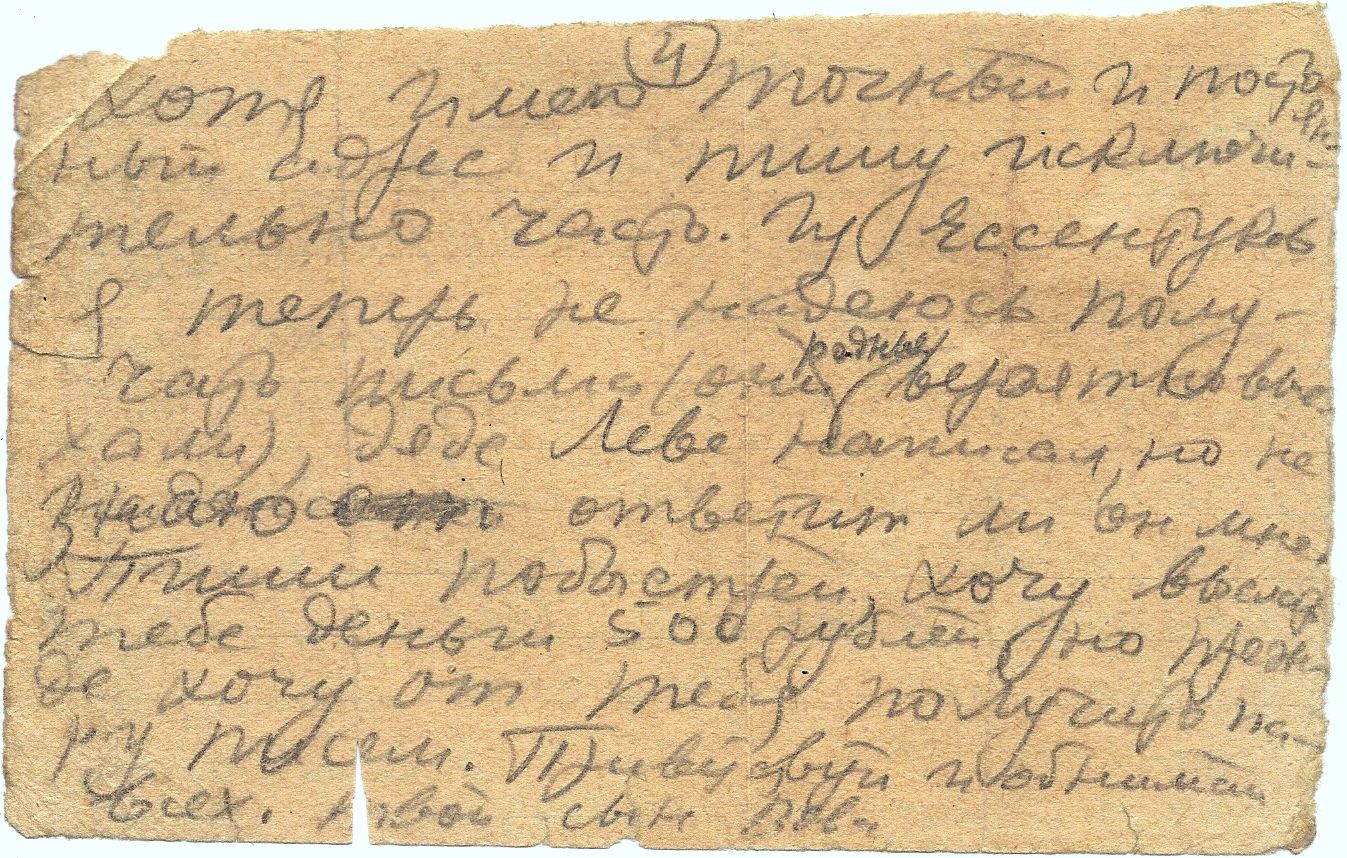 4
хотя имею точный и постоян-
ный адрес и пишу исключи-
тельно часто. Из Ессентуков
я теперь не надеюсь полу-
родные
чать письма (они вероятно вые-
хали), дяде Леве написал, но не
знаю ответит ли он мне.
Пиши побыстрей, хочу выслать
тебе деньги 500 рублей, но преж-
де хочу от тебя получить па-
ру писем. Приветствуй и обнимай
всех. твой сын Вова